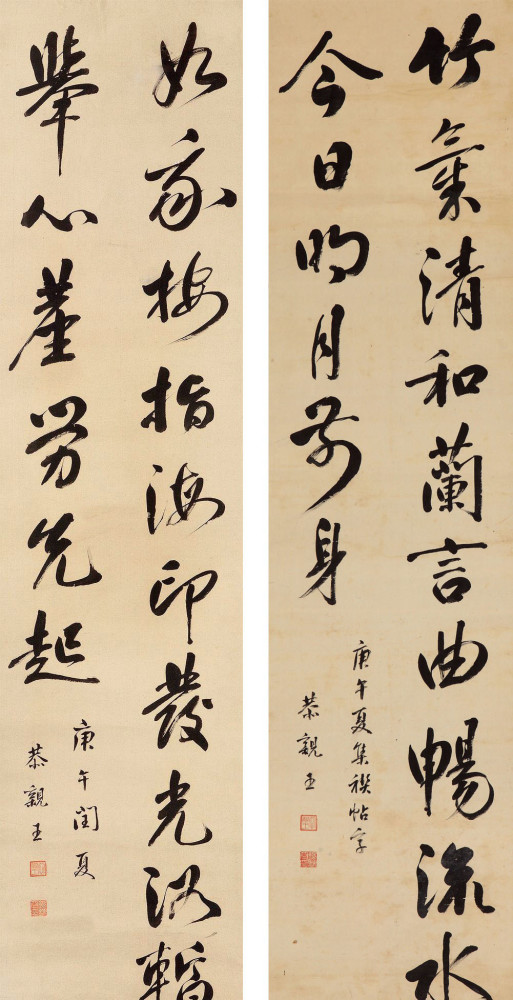 竹氣清和蘭言曲暢流水
今日明月前身
庚午夏集禊帖字
恭親王
如我按指海印發光汝暫
舉心塵勞先起
庚午閏夏
恭親王